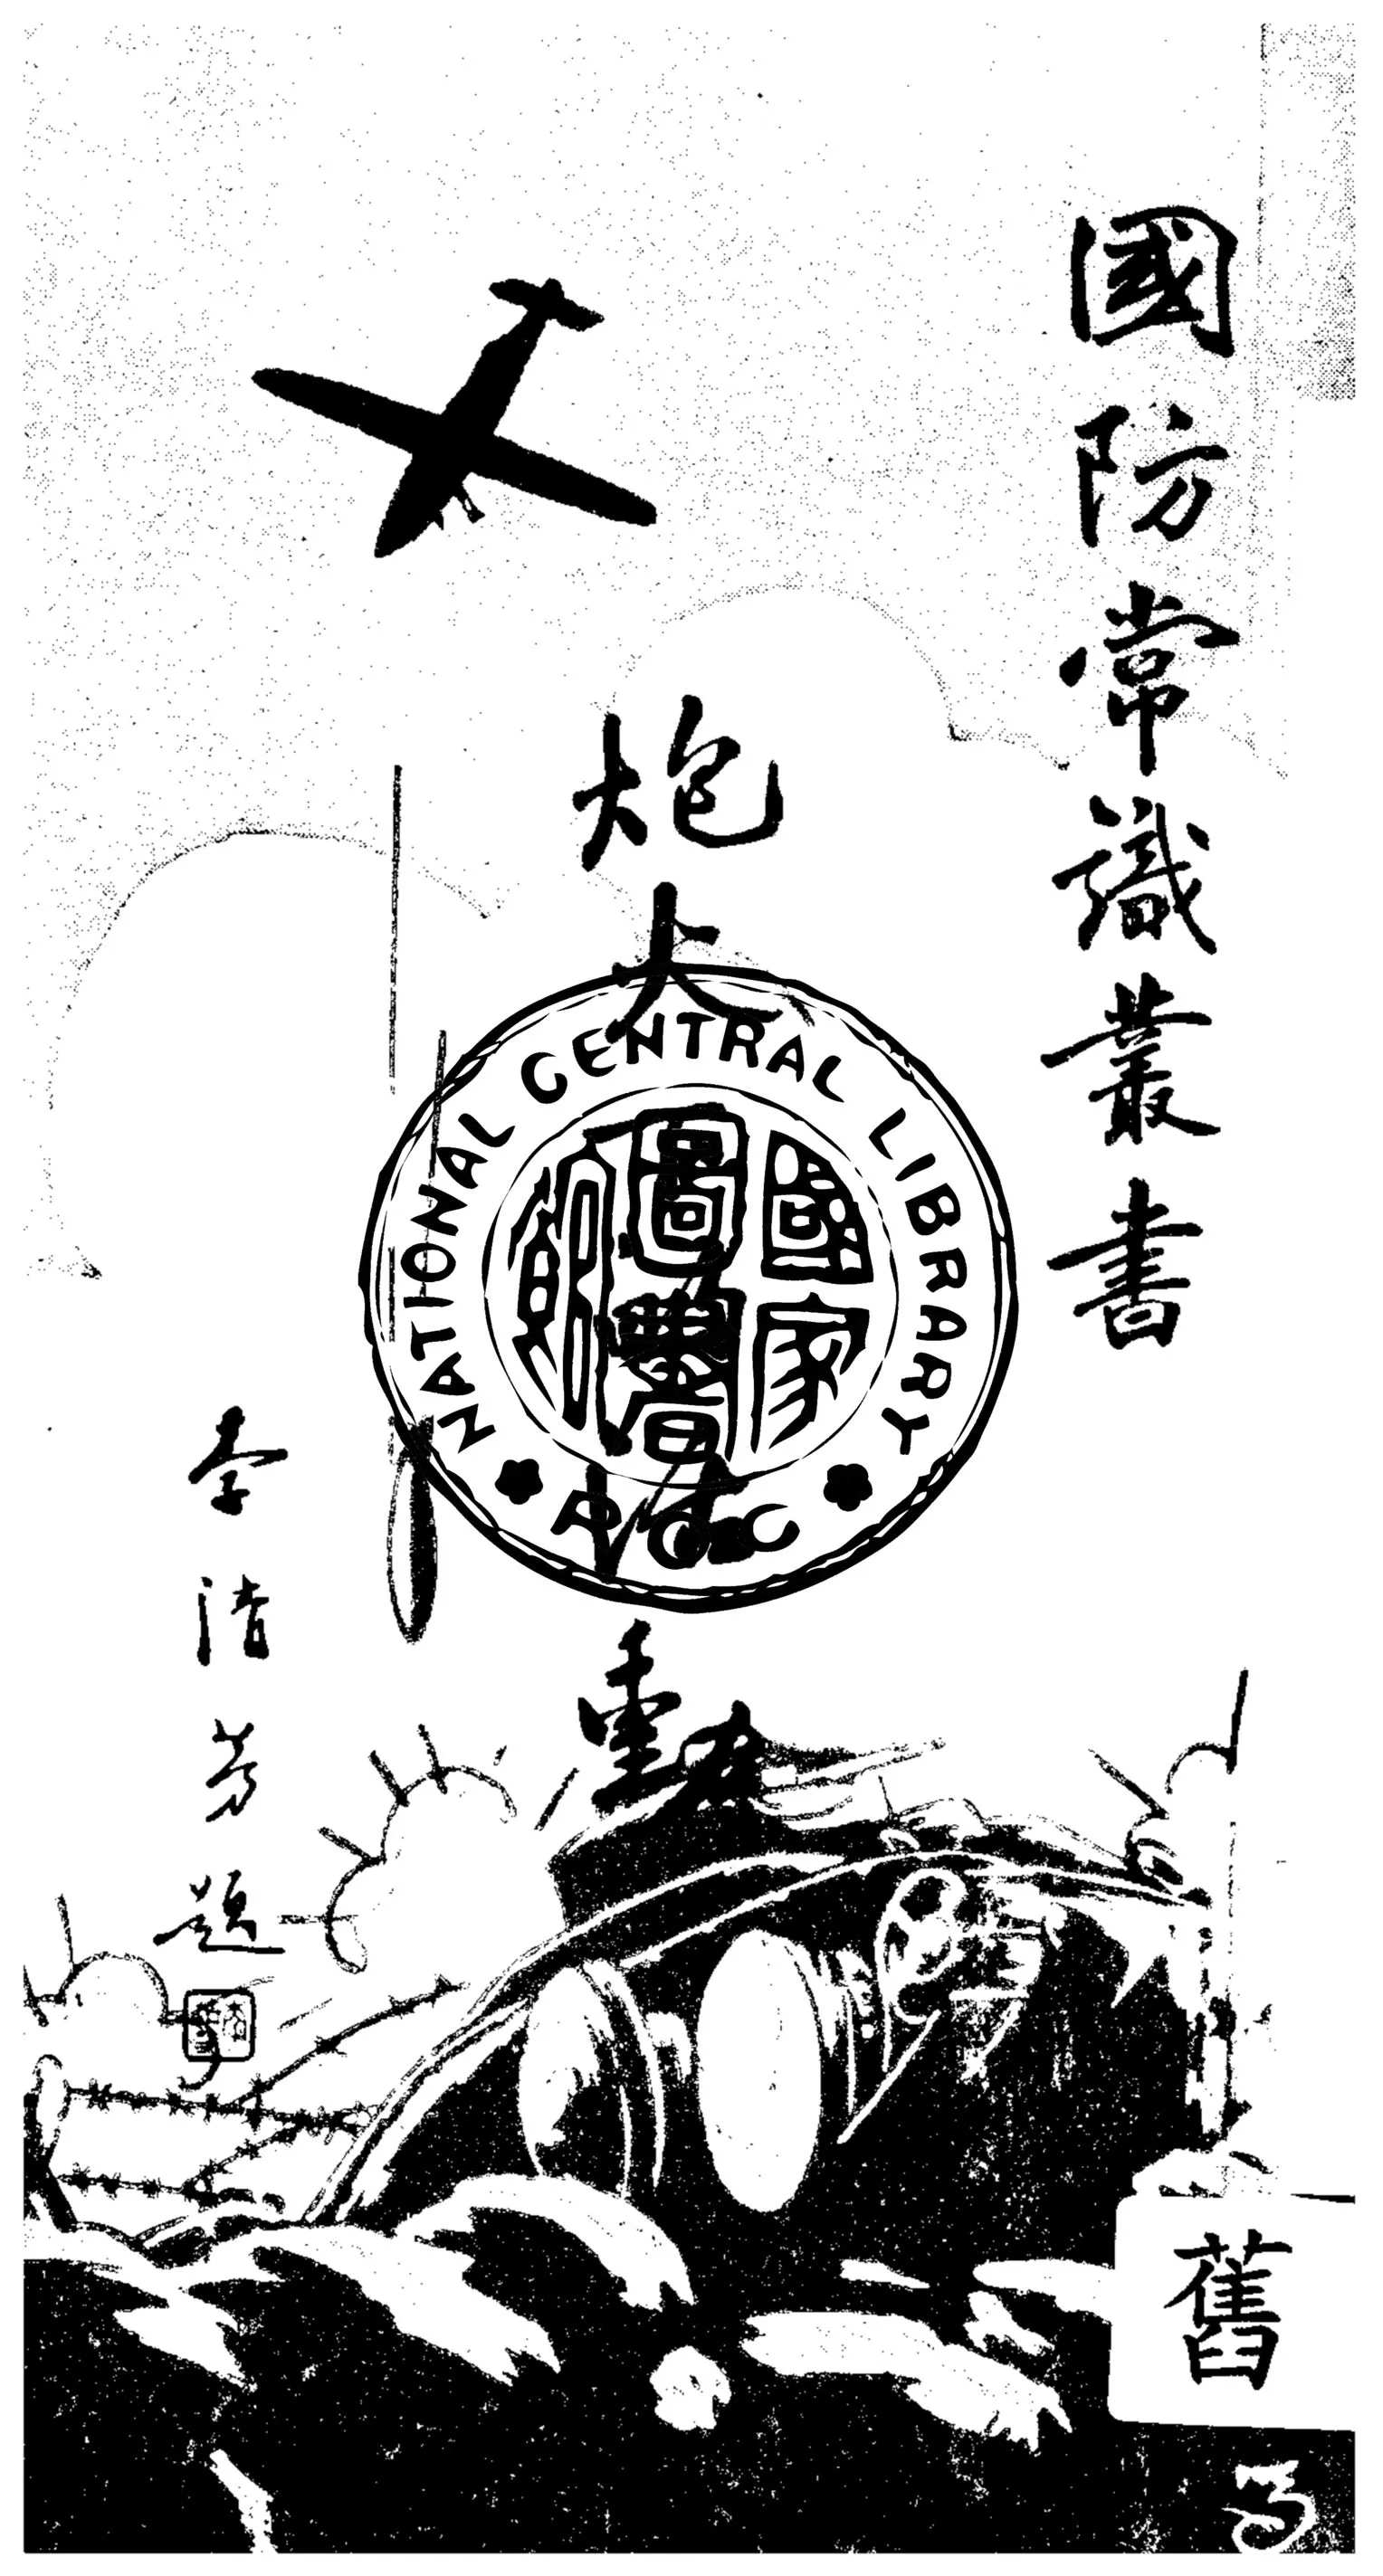 國防常識叢書
炮火
動
李清芳題
NATIONAL CENTRAL LIBRARY
國家圖書館
ROC
舊